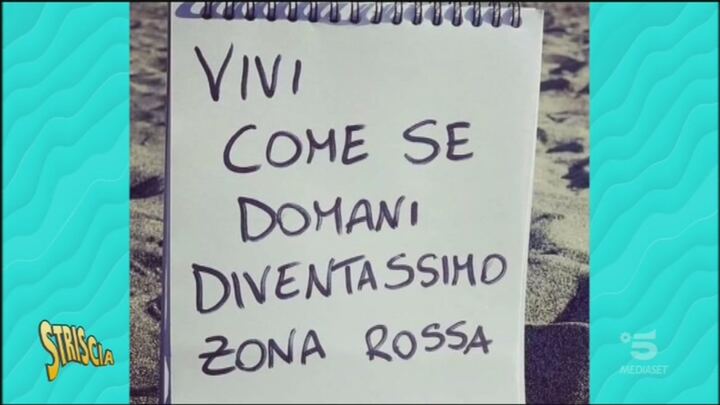 VIVI
COME SE
DOMANI
DIVENTASSIMO
ZONA ROSSA
STRISCIA
5
MEDIASET